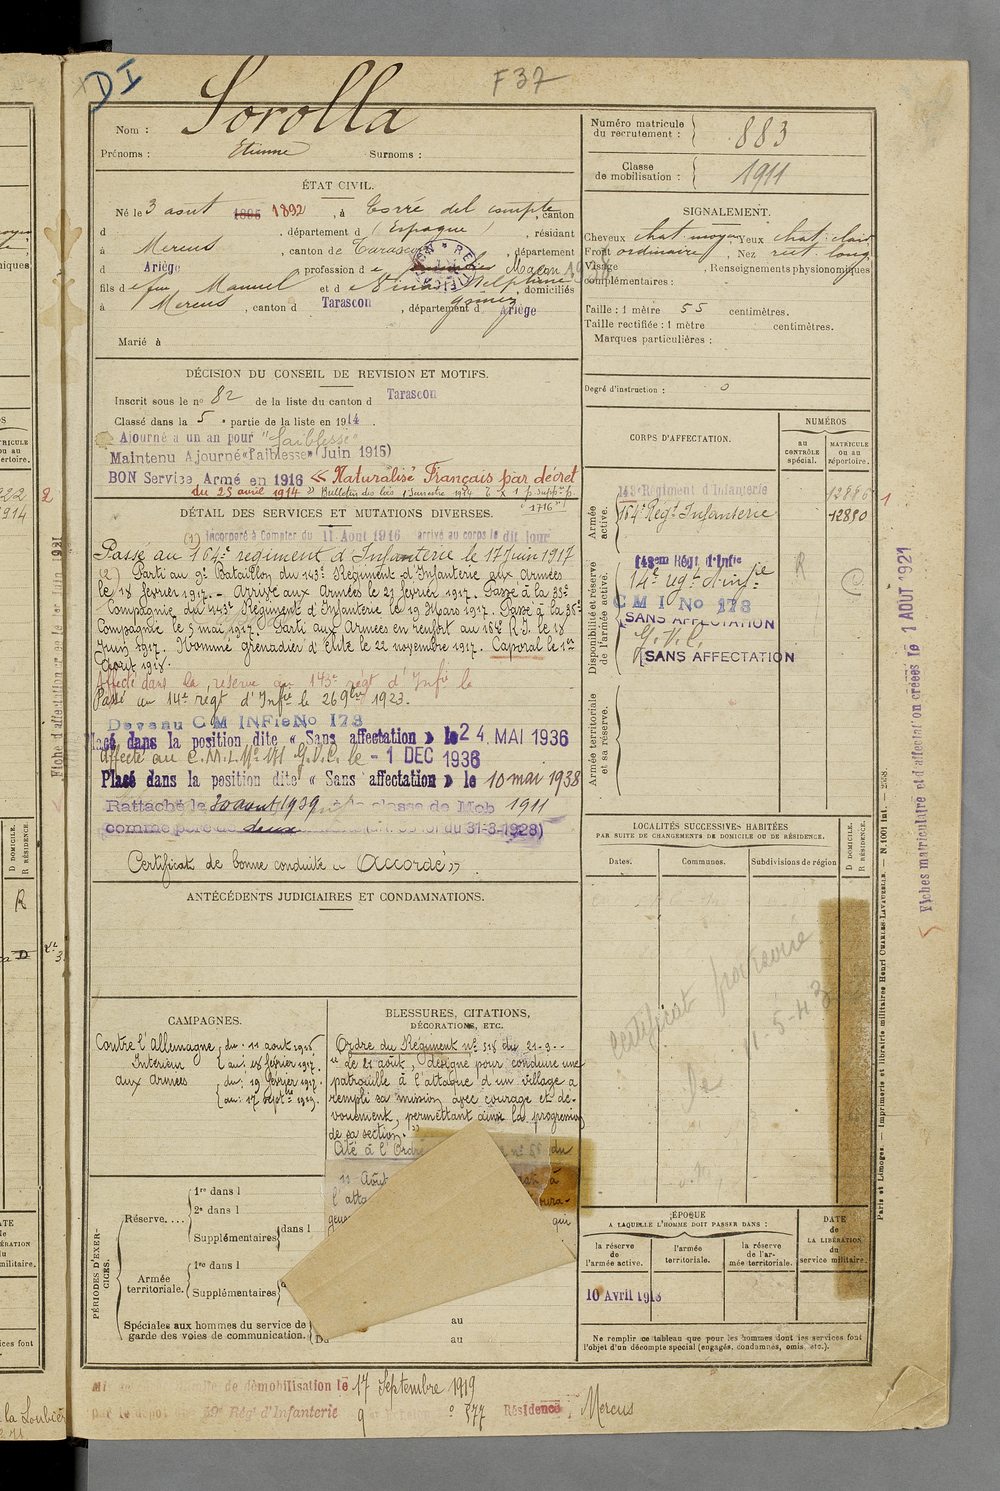 DI
F 37
Nom : Sorolla
Prénoms : Etienne Surnoms :
ÉTAT CIVIL.
Né le 3 aout 1895 1892, à Torre del compte, canton
d , département d (Espagne) , résidant
à Mercus , canton de Tarascon , département
d Ariège , profession de Maçon
fils de feu Manuel et de Nina Delphine gomez, domiciliés
à Mercus , canton d Tarascon , département d Ariège
Marié à
DÉCISION DU CONSEIL DE REVISION ET MOTIFS.
Inscrit sous le no 82 de la liste du canton d Tarascon
Classé dans la 5e partie de la liste en 1914
Ajourné a un an pour "faiblesse"
Maintenu Ajourné «faiblesse» (Juin 1915)
BON Service Armé en 1916 « Naturalisé Français par décret
du 25 avril 1914 » Bulletin des lois 1 Semestre 1914 p. supp. p.
"1716"
DÉTAIL DES SERVICES ET MUTATIONS DIVERSES.
(1) incorporé à Compter du 11 Aout 1916 arrivé au corps le dit jour
Passé au 164e régiment d'Infanterie le 17 Juin 1917
(2) Parti au 9e Bataillon du 143e Régiment d'Infanterie aux Armées
le 18 février 1917. - Arrivé aux Armées le 21 février 1917. Passé à la 35e
Compagnie du 143e Régiment d'Infanterie le 19 Mars 1917. Passé à la 36e
Compagnie le 5 mai 1917. Parti aux Armées en renfort au 164e R.I. le 18
Juin 1917. Nommé grenadier d'élite le 22 novembre 1917. Caporal le 1er
Aout 1918.
Affecté dans la réserve au 143e régt d'Infie le
Passé au 14e régt d'Infie le 26 9bre 1923.
Devenu C M INFie No 178
Placé dans la position dite « Sans affectation » le 24 MAI 1936
Affecté au C.M.I. No 171 G.V.C. le - 1 DEC 1936
Placé dans la position dite « Sans affectation » le 10 mai 1938
Rattaché le 30 aout 1939 à la classe de Mob 1911
comme père de deux du 31-3-1928)
Certificat de bonne conduite « Accordé »
ANTÉCÉDENTS JUDICIAIRES ET CONDAMNATIONS.
CAMPAGNES.
Contre l'Allemagne
Intérieur du : 11 aout 1916
au : 18 février 1917.
aux armées du : 19 février 1917.
au : 17 septbre 1919.
BLESSURES, CITATIONS,
DÉCORATIONS, ETC.
Ordre du Régiment no 518 du 21-9-
" Le 21 août, désigné pour conduire une
patrouille à l'attaque d'un village a
rempli sa mission avec courage et dé-
vouement, permettant ainsi la progression
de sa section. "
Cité à l'Ordre no 88 du
11 Août
l'atta
PÉRIODES D'EXERCICES.
Réserve....
1re dans l
2e dans l
Supplémentaires dans l
Armée territoriale.
1re dans l
Supplémentaires
Spéciales aux hommes du service de
garde des voies de communication.
Du au
au
Numéro matricule
du recrutement : 883
Classe
de mobilisation : 1911
SIGNALEMENT.
Cheveux chat. moyen Yeux chat. clair
Front ordinaire , Nez rect. long
Visage , Renseignements physionomiques
complémentaires :
Taille : 1 mètre 55 centimètres.
Taille rectifiée : 1 mètre centimètres.
Marques particulières :
Degré d'instruction : 0
CORPS D'AFFECTATION.
NUMÉROS
au
CONTRÔLE
spécial.
MATRICULE
ou au
répertoire.
Armée
active.
143e Régiment d'Infanterie 12886
164e Régt Infanterie 12880
Disponibilité et réserve
de l'armée active.
143me Régt d'Infie R
14e régt d'infie
C M I No 178
SANS AFFECTATION
G.V.C.
SANS AFFECTATION
Armée territoriale
et sa réserve.
LOCALITÉS SUCCESSIVES HABITÉES
PAR SUITE DE CHANGEMENTS DE DOMICILE OU DE RÉSIDENCE.
Dates. Communes. Subdivisions de région
D DOMICILE.
R RÉSIDENCE.
Certificat provisoire
le 11-5-43
ÉPOQUE
A LAQUELLE L'HOMME DOIT PASSER DANS :
la réserve
de l'armée active.
l'armée
territoriale.
la réserve
de l'ar-
mée territoriale.
DATE
de
LA LIBÉRATION
du
service militaire.
10 Avril 1918
Ne remplir ce tableau que pour les hommes dont les services font
l'objet d'un décompte spécial (engagés, condamnés, omis, etc.).
de démobilisation le 17 Septembre 1919
par le dépôt du 59e Régt d'Infanterie 977 Résidence, Mercus
Fiches matriculaire et d'affectation créées le 1 AOUT 1921
Paris et Limoges. — Imprimerie et librairie militaires Henri CHARLES-LAVAUZELLE.